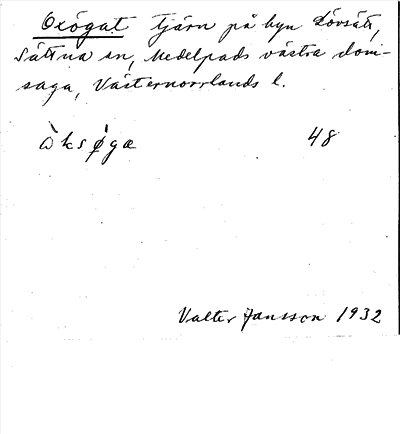 Oxögat tjärn på byn Lövsätt,
Sättna sn, Medelpads västra dom-
saga, Västernorrlands l.
òksø̀gæ 48
Valter Jansson 1932